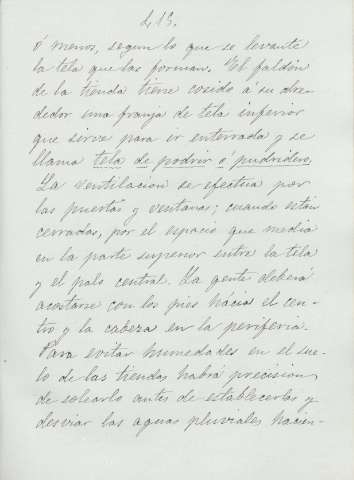 413.
ó menos, segun lo que se levante
la tela que las forman. El faldón
de la tienda tiene cosido á su alre-
dedor una franja de tela inferior
que sirve para ir enterrada y se
llama tela de podrir ó pudridero.
La ventilacion se efectua por
las puertas y ventanas; cuando estén
cerradas, por el espacio que media
en la parte superior entre la tela
y el palo central. La gente deberá
acostarse con los pies hacia el cen-
tro y la cabeza en la periferia.
Para evitar humedades en el sue-
lo de las tiendas habrá precision,
de solearlo antes de establecerlas y
desviar las aguas pluviales hacien-